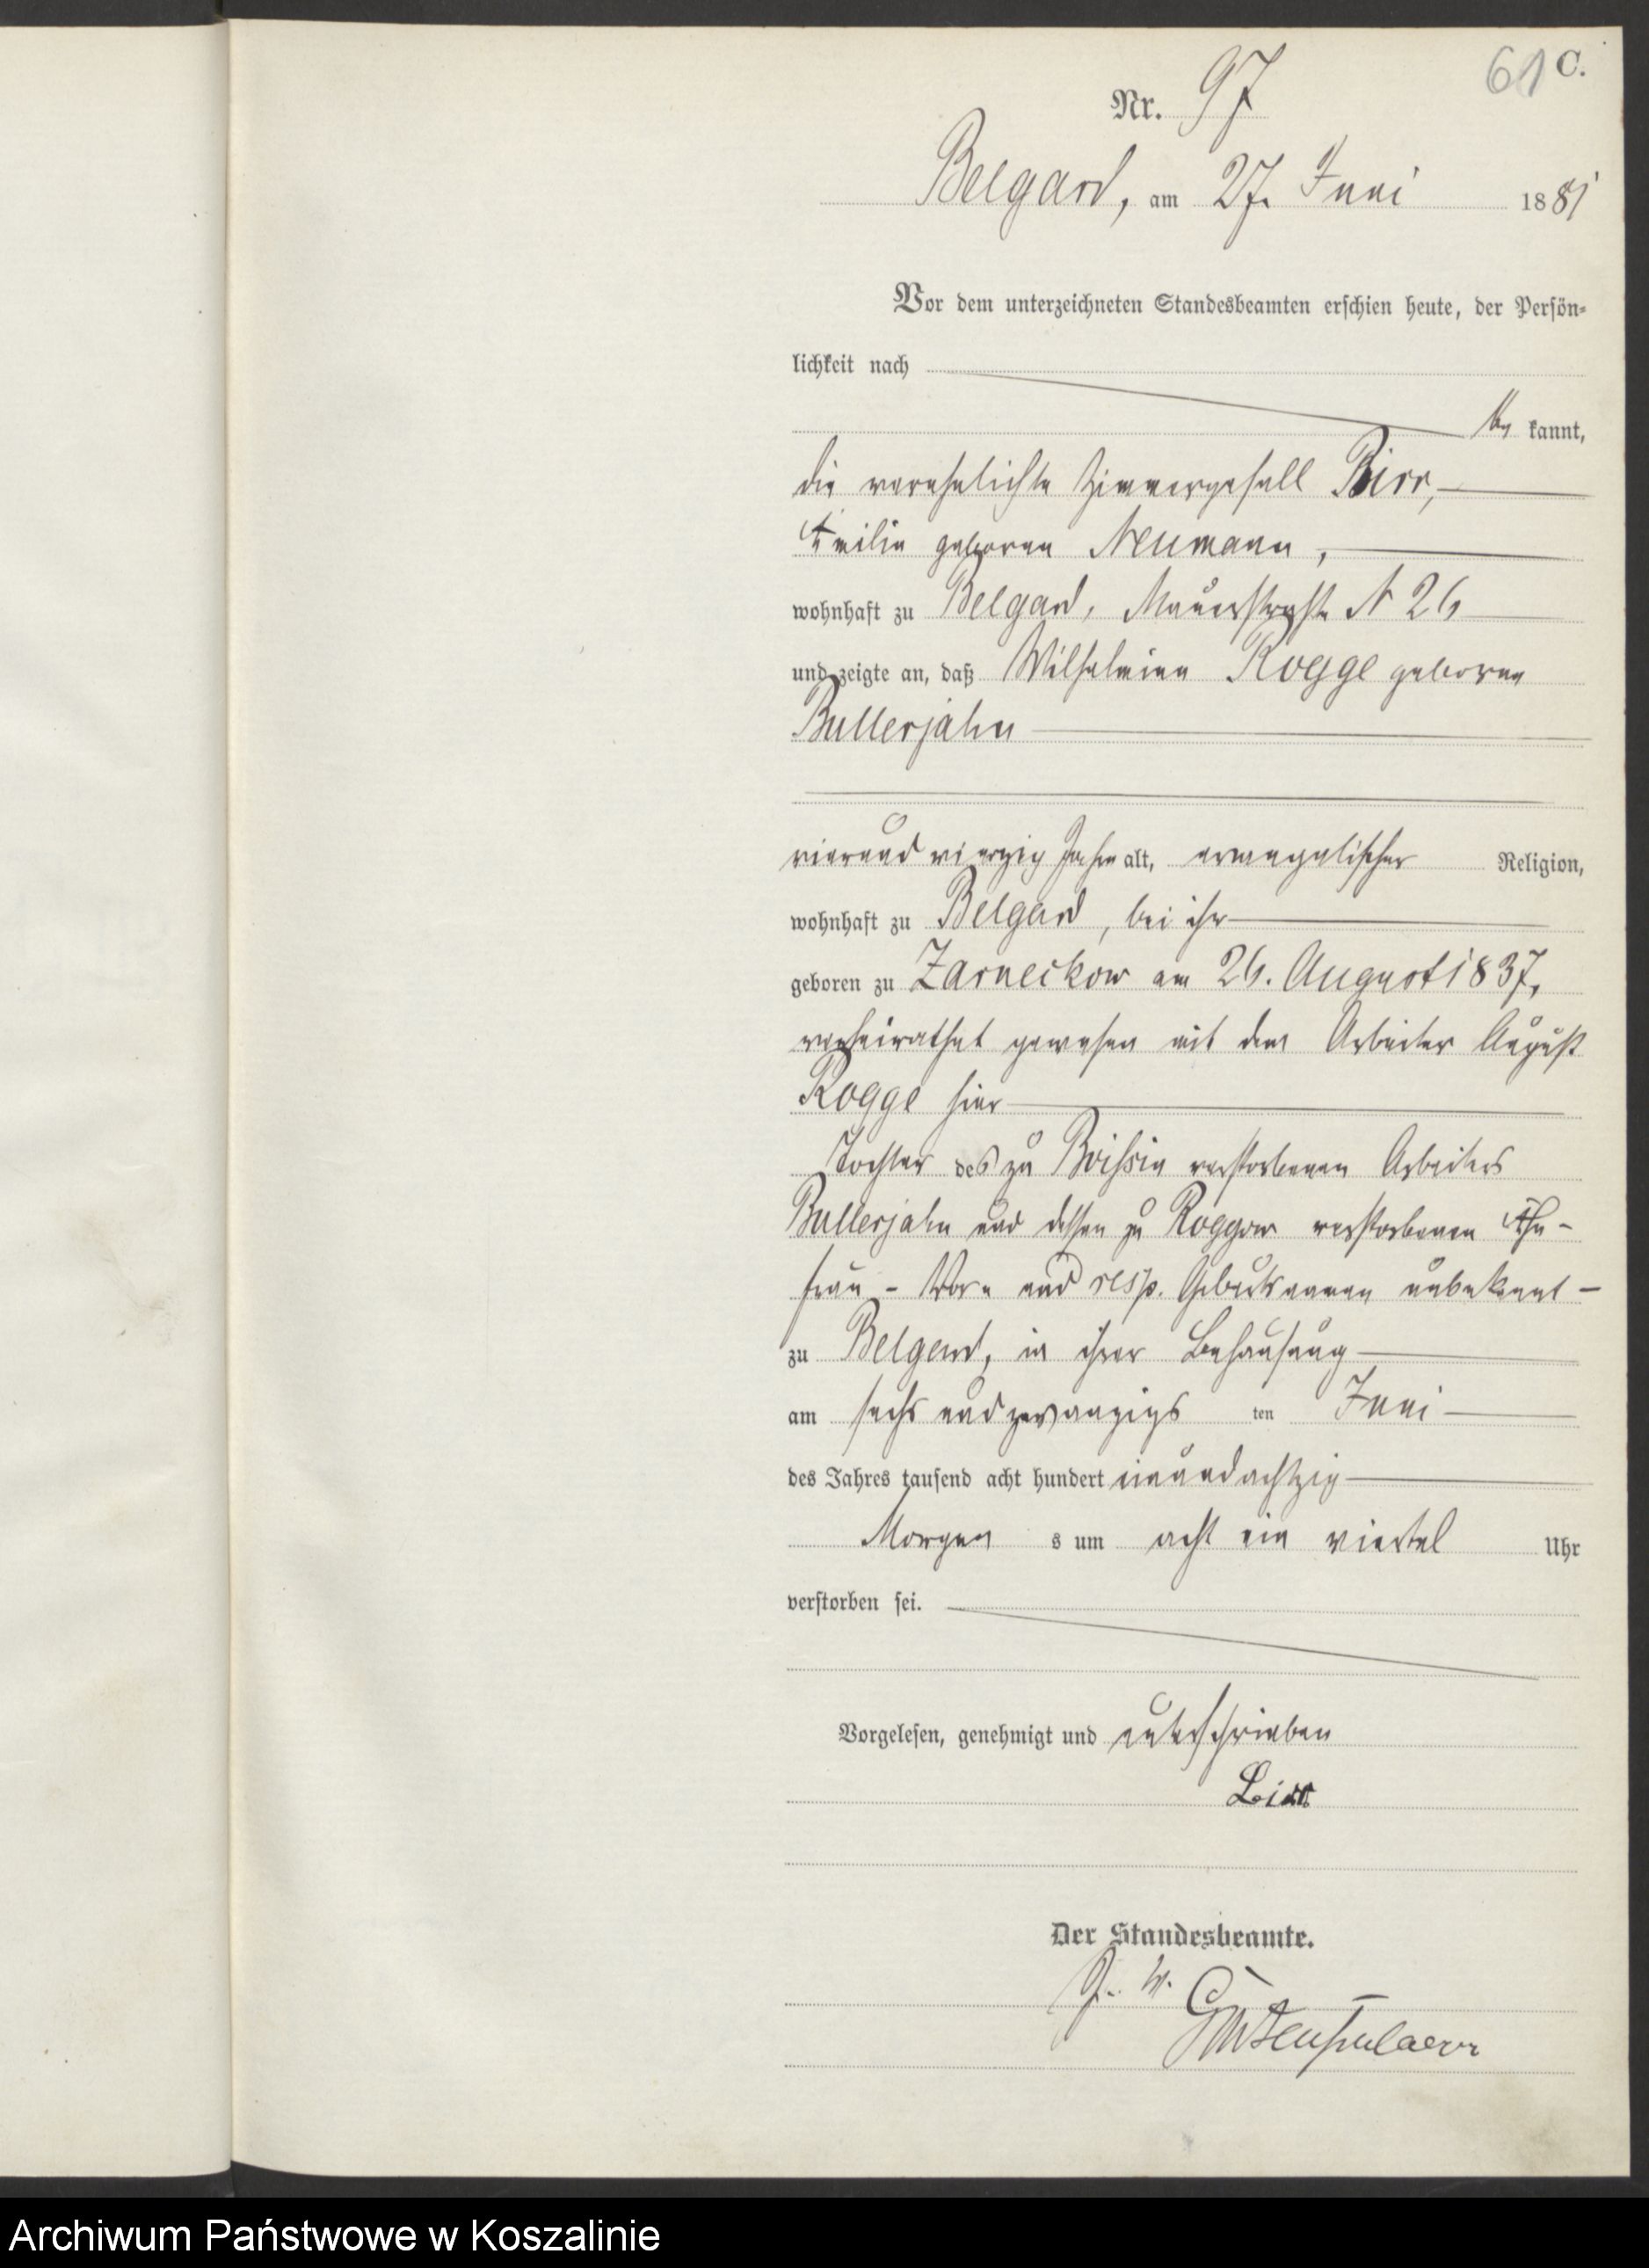 61 C.
Nr. 97
Belgard, am 27. Juni 1881
Vor dem unterzeichneten Standesbeamten erschien heute, der Persön-
lichkeit nach
be kannt,
die verehelichte Zimmergesell Birr,
Emilie geborne Neumann,
wohnhaft zu Belgard, Mauerstraße N 26
und zeigte an, daß Wilhelmine Rogge geborne
Bullerjahn
vierundvierzig Jahre alt, evangelischer Religion,
wohnhaft zu Belgard, bei ihr
geboren zu Zarneckow am 26. August 1837,
verheirathet gewesen mit dem Arbeiter August
Rogge hier
Tochter des zu Boissin verstorbenen Arbeiters
Bullerjahn und dessen zu Roggow verstorbenen Ehe-
frau - Vor- und resp. Geburtsnamen unbekannt -
zu Belgard, in ihrer Behausung
am sechsundzwanzigs ten Juni
des Jahres tausend acht hundert einundachtzig
Morgen s um acht ein viertel Uhr
verstorben sei.
Vorgelesen, genehmigt und unterschrieben
Birr
Der Standesbeamte.
Archiwum Państwowe w Koszalinie